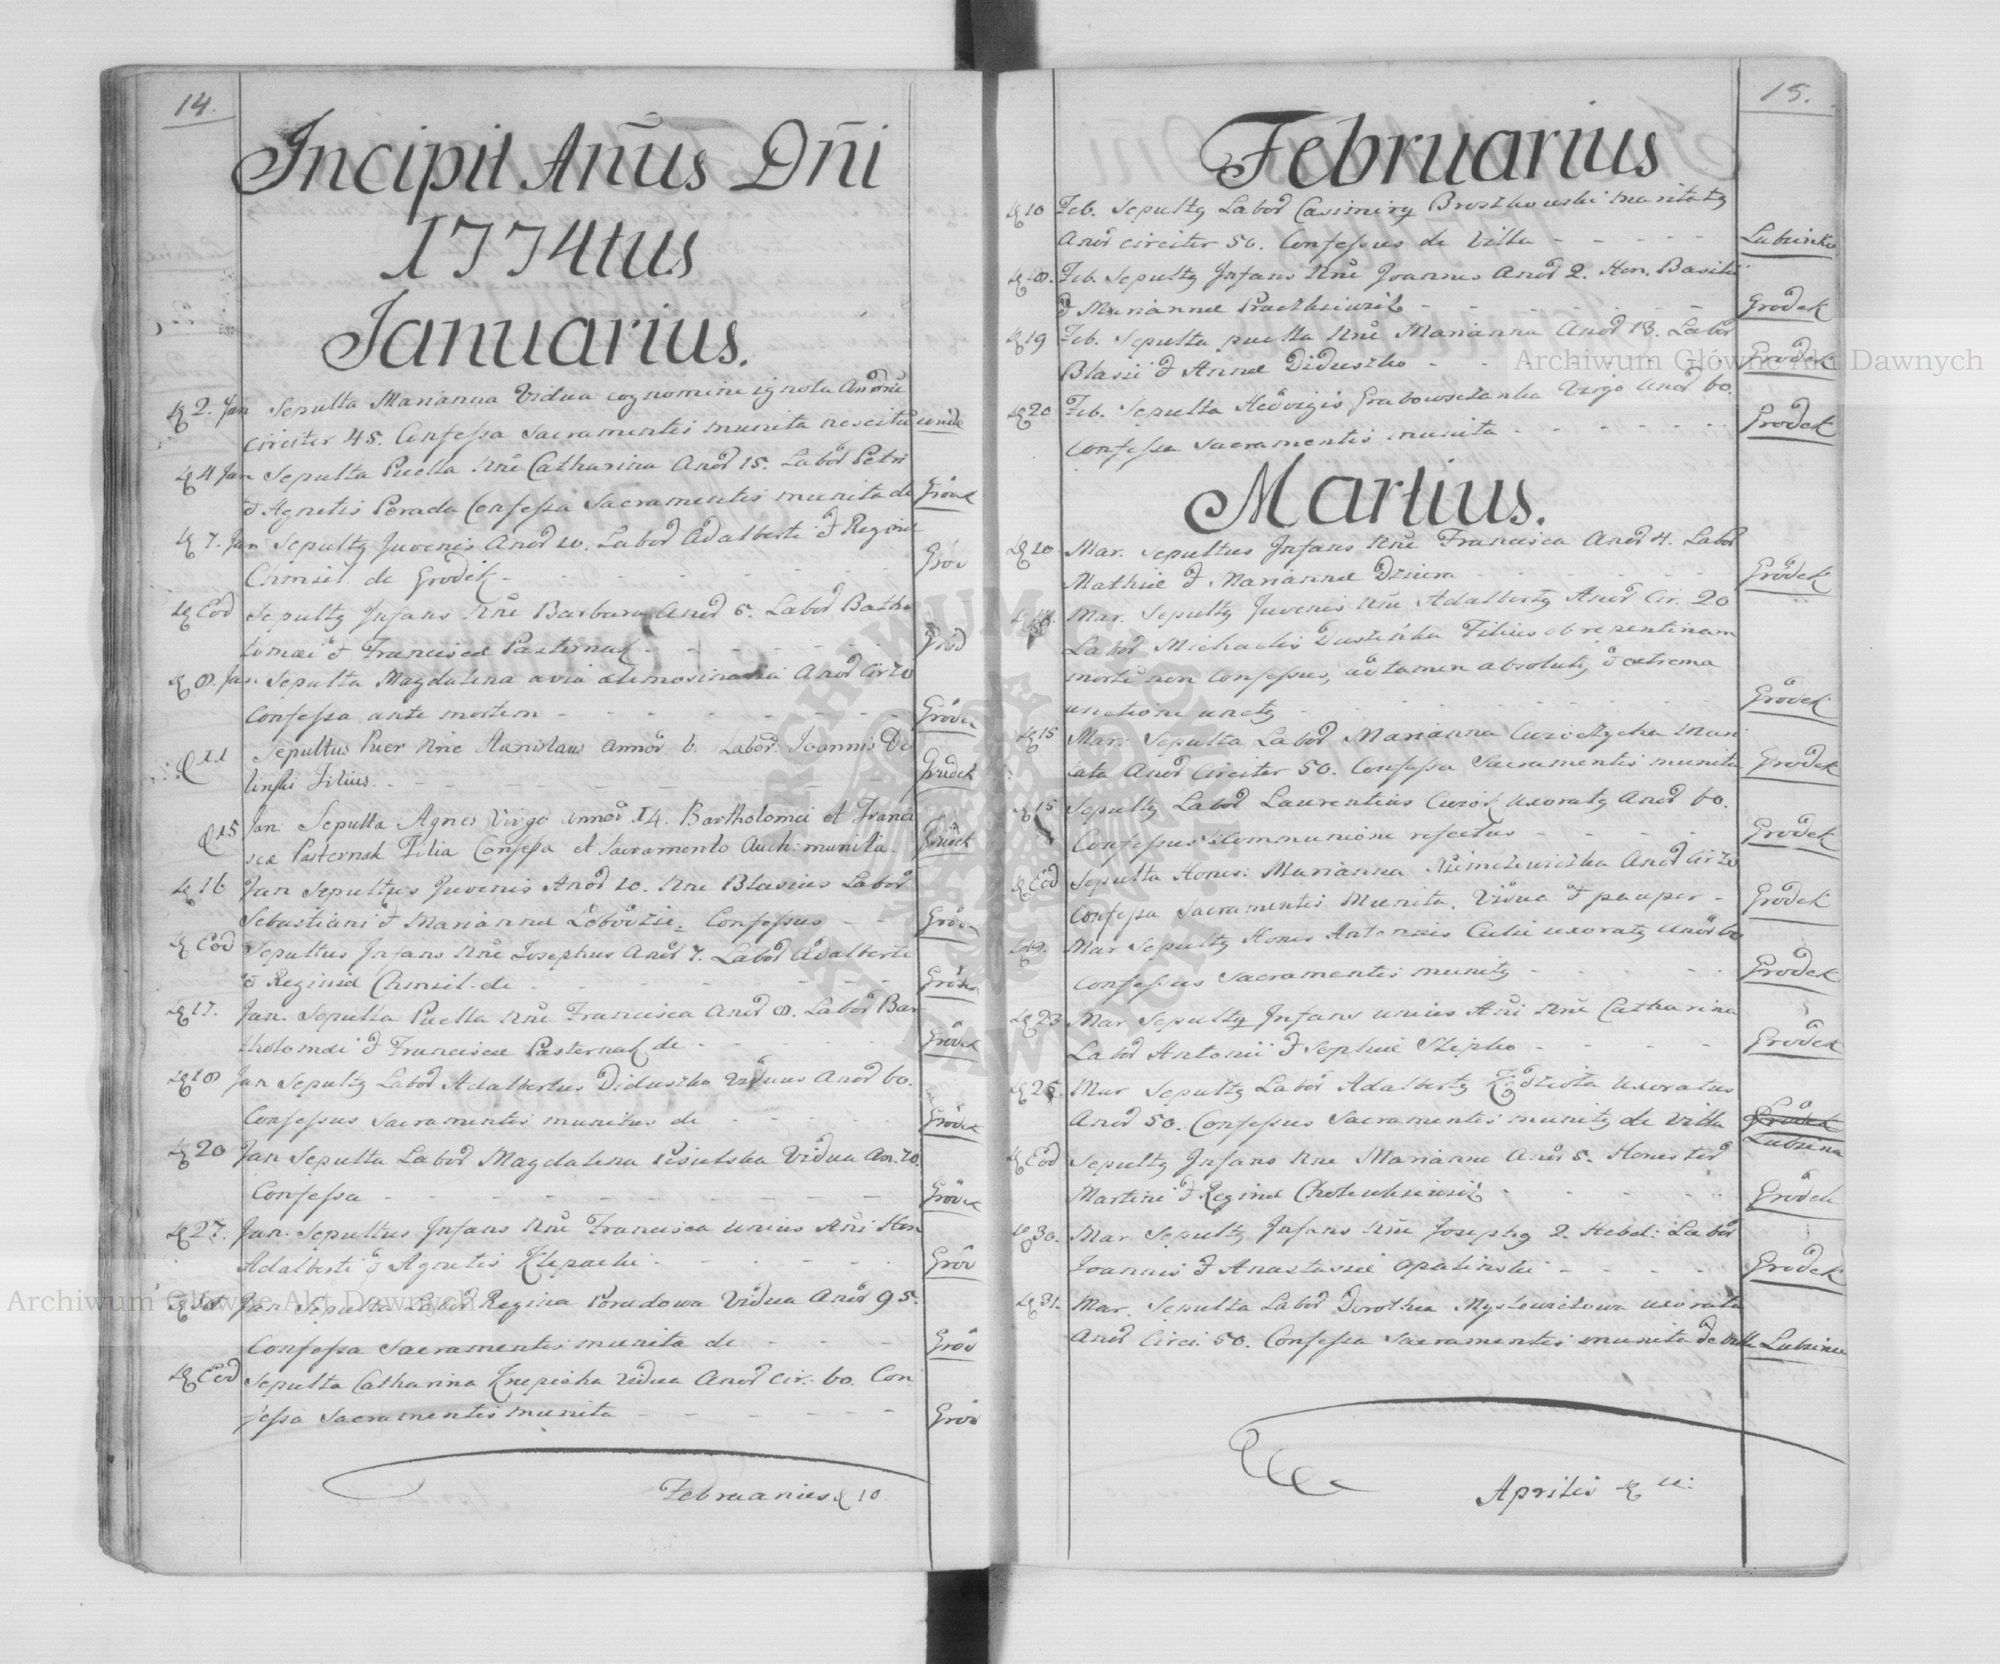 14.
Incipit Añus Dñi
1774tus
Januarius.
2. Jan Sepulta Marianna Vidua cognomine ignota
circiter 45. Confessa Sacramentis munita nescitur unde
4 Jan Sepulta Puella Nñe Catharina Anor 15. Labor Petri
& Agnetis Porada Confessa Sacramentis munita de Grodek
7. Jan Sepultus Juvenis Anor 20. Labor Adalberti & Regina
Chmiel de Grodek Grod
Eod Sepultus Infans Nñe Barbara Anor 6. Labor Bartho
lomæi & Francisca Pasternak Grod
8. Jan Sepulta Magdalena avia elimosinaria Anor Cir
Confessa ante mortem Grodek
11 Sepultus Puer Nñe Stanislaus Annor 6. Labor. Joannis
linski Filius Grudek
15 Jan: Sepulta Agnes Virgo Annor 14. Bartholomei et Franci
sca Pasternak Filia Confessa et Sacramento Euch: munita. Grudek
16 Jan Sepultus Juvenis Anor 20. Nñe Blasius Labor
Sebastiani & Marianna Confessus Grod
Eod Sepultus Infans Nñe Josephus Anor 7. Labor Adalberti
& Regina Chmiel. de Grodek
17. Jan. Sepulta Puella Nñe Francisca Anor 8. Labor Bar
tholomæi & Francisca Pasternak de Grodek
18 Jan Sepultus Labor Adalbertus Diduszko Viduus Anor 60.
Confessus Sacramentis munitus de Grodek
20 Jan Sepulta Labor Magdalena Vidua An. 70.
Confessa Grodek
27. Jan. Sepultus Infans Nñe Francisca unius Añi Hon
Adalberti & Agnetis Klepacki Grod
Jan Sepulta Labor Regina Poradowa Vidua Anor 95.
Confessa Sacramentis munita de Grod
Eod Sepulta Catharina Vidua Anor Cir. 60. Con
fessa Sacramentis munita Grod
Februarius 10
15.
Februarius
10 Feb. Sepultus Labor Casimirus Broszkowski maritatus
Anor circiter 50. Confessus de Villa Lubzinka
18. Feb. Sepultus Infans Nñe Joannes Anor 2. Hon. Basilii
& Marianna Grodek
19 Feb. Sepulta puella Nñe Marianna Anor 13. Labor
Blasii & Anna Diduszko Grodek
20 Feb. Sepulta Hedvigis Virgo Anor 60.
Confessa Sacramentis munita Grodek
Martius.
10 Mar. Sepultus Infans Nñe Francisca Anor 4. Labor
Mathiæ & Marianna Grodek
Mar. Sepultus Juvenis Nñe Adalbertus Anor Cir. 20
Labor Michaelis Filius ob repentinam
mortē non Confessus, attamen absolutus & extrema
unctione unctus Grodek
15 Mar. Sepulta Labor Marianna mari
tata Anor Circiter 50. Confessa Sacramentis munita Grodek
15 Sepultus Labor Laurentius uxoratus Anor 60.
Confessus & Communione refectus Grodek
Eod Sepulta Hones: Marianna Anor Cir 70
Confessa Sacramentis Munita. Vidua & pauper Grodek
19. Mar Sepultus Hones Antonius uxoratus Anor 60
Confessus Sacramentis munitus Grodek
23 Mar Sepultus Infans unius Añi Nñe Catharina
Labor Antonii & Sophiæ Szipko Grodek
25 Mar Sepultus Labor Adalbertus uxoratus
Anor 50. Confessus Sacramentis munitus de Villa Grodek
Lubzina
Eod Sepultus Infans Nñe Marianna Anor 5. Honestor
Martini & Regina Grodek
30. Mar Sepultus Infans Nñe Josephus 2. Hebd: Labor
Joannis & Anastasiæ Opalinski Grodek
31. Mar. Sepulta Labor Dorothea uxorata
Anor Circi. 50. Confessa Sacramentis munita de Villa Lubzina
Aprilis
Archiwum Główne Akt Dawnych
Archiwum Główne Akt Dawnych